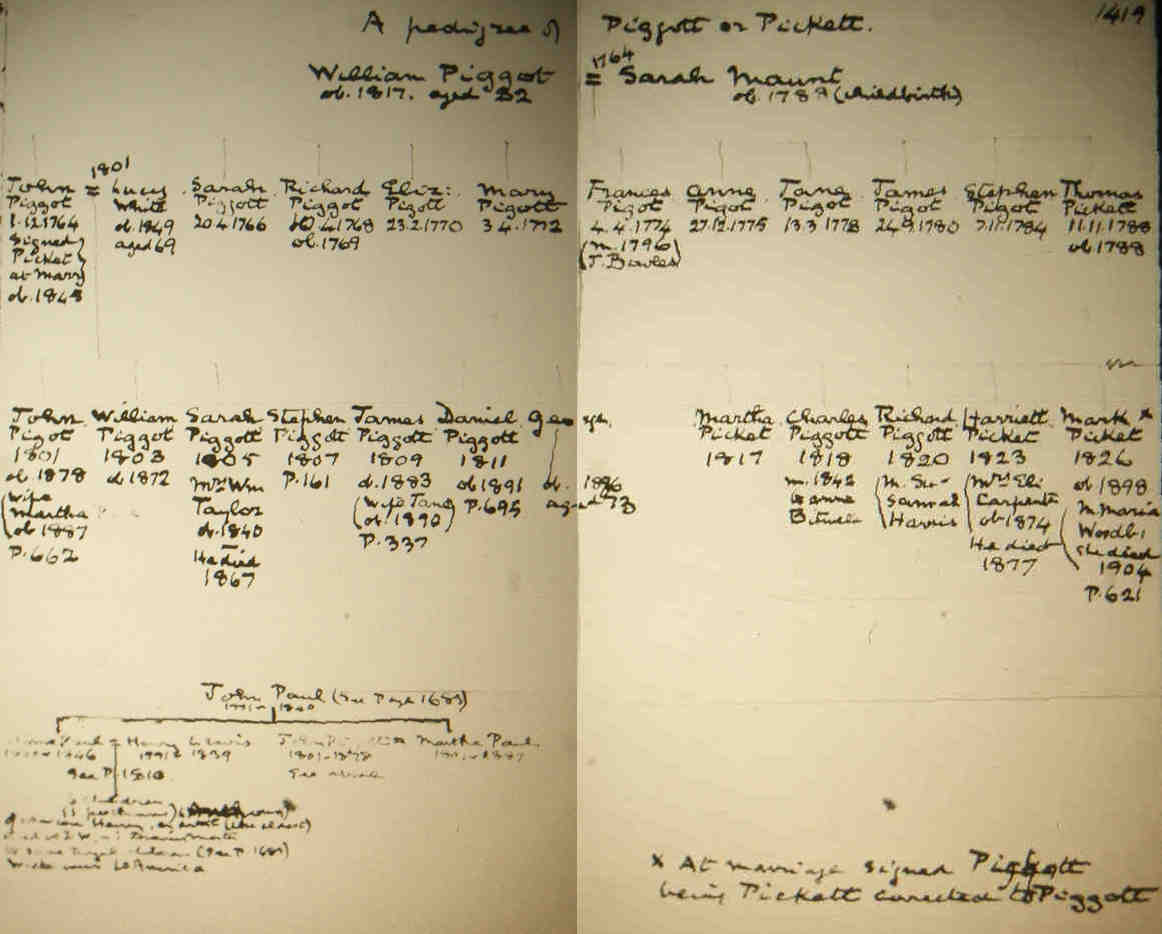 1419
A pedigree of Piggott or Pickett.
William Piggot = 1764 Sarah Maunt
ob. 1817. aged 82 ob. 1789 (childbirth)
1801
John = Lucy Sarah Richard Eliz: Mary Frances Anne Jane James Stephen Thomas
Piggot White Piggott Piggot Pigott Pigott Pigot Pigot Pigot Pigot Pigot Pickett
1.12.1764 ob. 1849 20.4.1766 10.4.1768 23.2.1770 3.4.1772 4.4.1774 27.12.1775 13.3.1778 24.9.1780 7.11.1784 11.11.1788
Signed aged 69 ob. 1769 (m. 1796) ob 1788
Picket (J. Bowles)
at Marr)
ob. 1848
John William Sarah Stephen James Daniel George Martha Charles Richard Harriett Mark x
Pigot Piggot Piggott Piggott Piggott Piggott Picket Piggott Piggott Picket Picket
1801 1803 1805 1807 1809 1811 1817 1818 1820 1823 1826
ob 1878 d. 1872 Mrs Wm P.161 d. 1883 ob 1891 ob. 1896 m. 1842 (m. (Mrs Eli ob 1898
(wife Taylor (wife Jane P.695 aged 73 Carpenter m. Maria
Martha d. 1840 ob. 1890) Harris ob 1874
ob 1887 He died P.337 He died she died
P.662 1867 1877 1904
P.621
John Paul (See Page 1689)
Paul = Henry Lewis John Martha Paul
1846 1839 1801-1878
See P. 1810 See above
children
(the eldest)
(See P. 1689)
to America
x At marriage signed Piggott
being Pickett corrected to Piggott